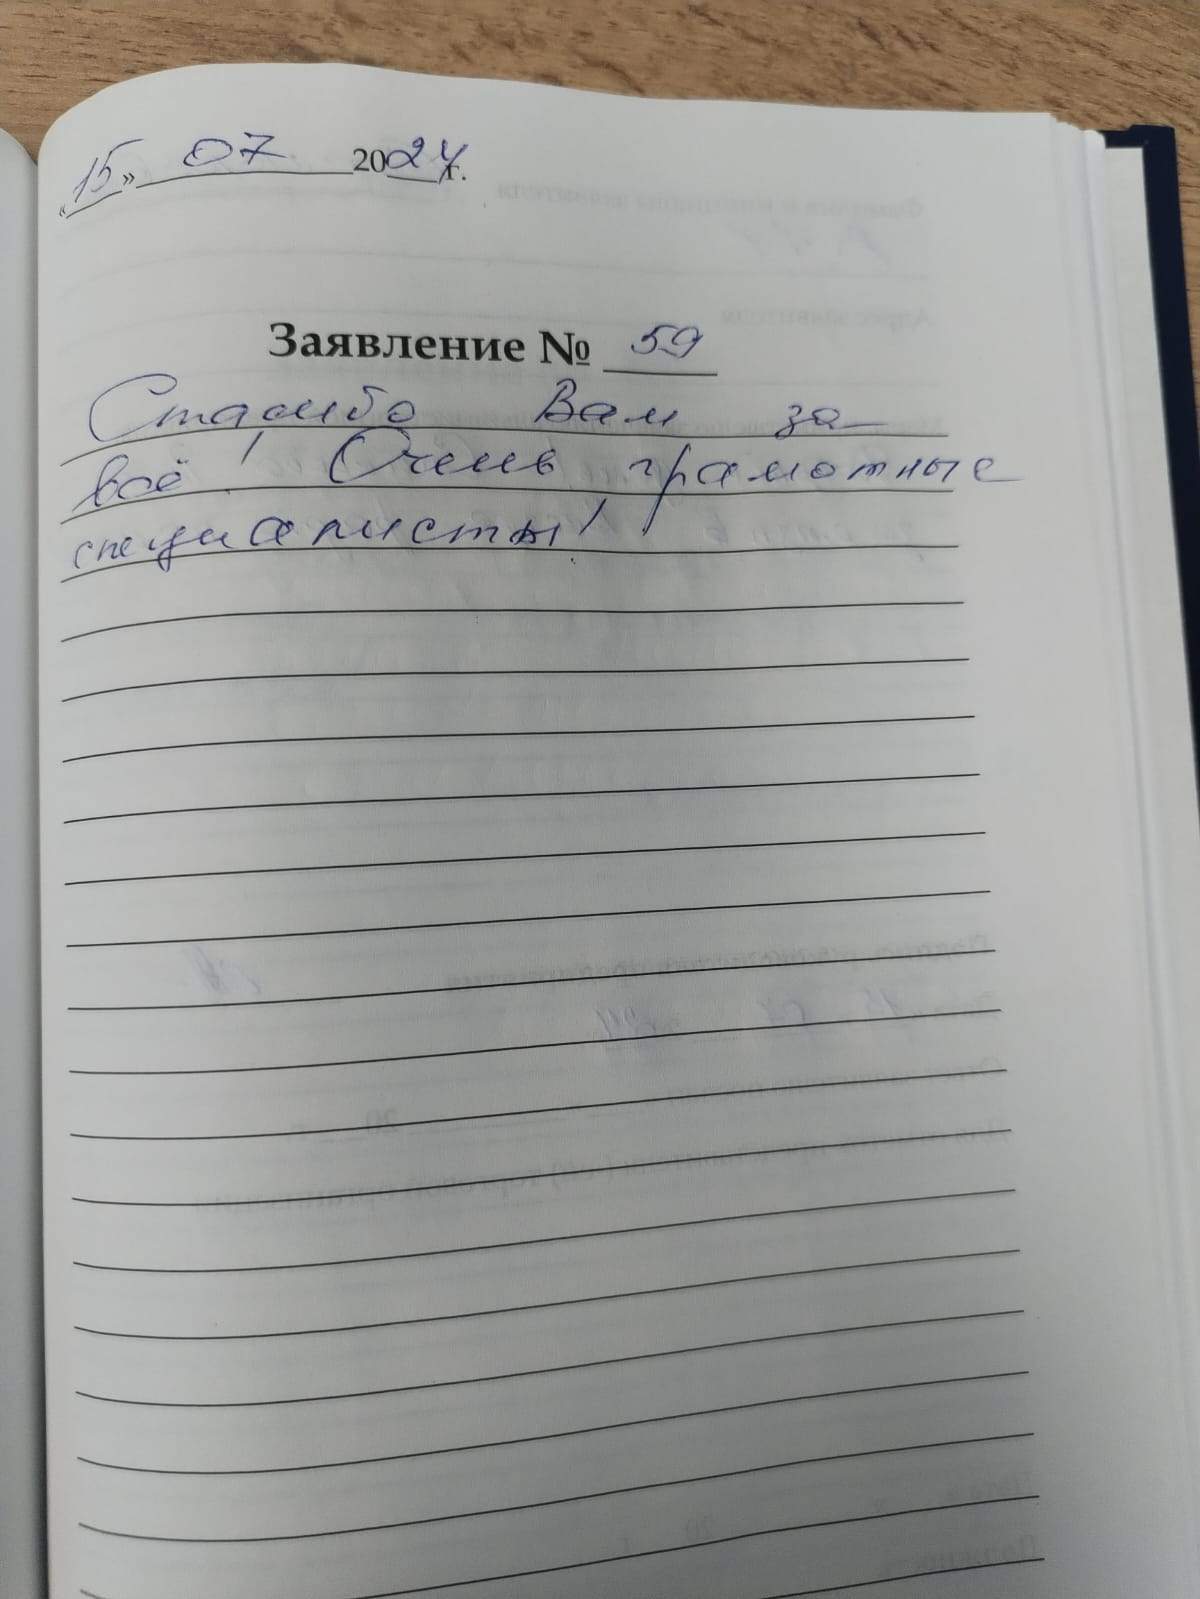 «15» 07 2024 г.
Заявление № 59
Спасибо Вам за
всё! Очень грамотные
специалисты!